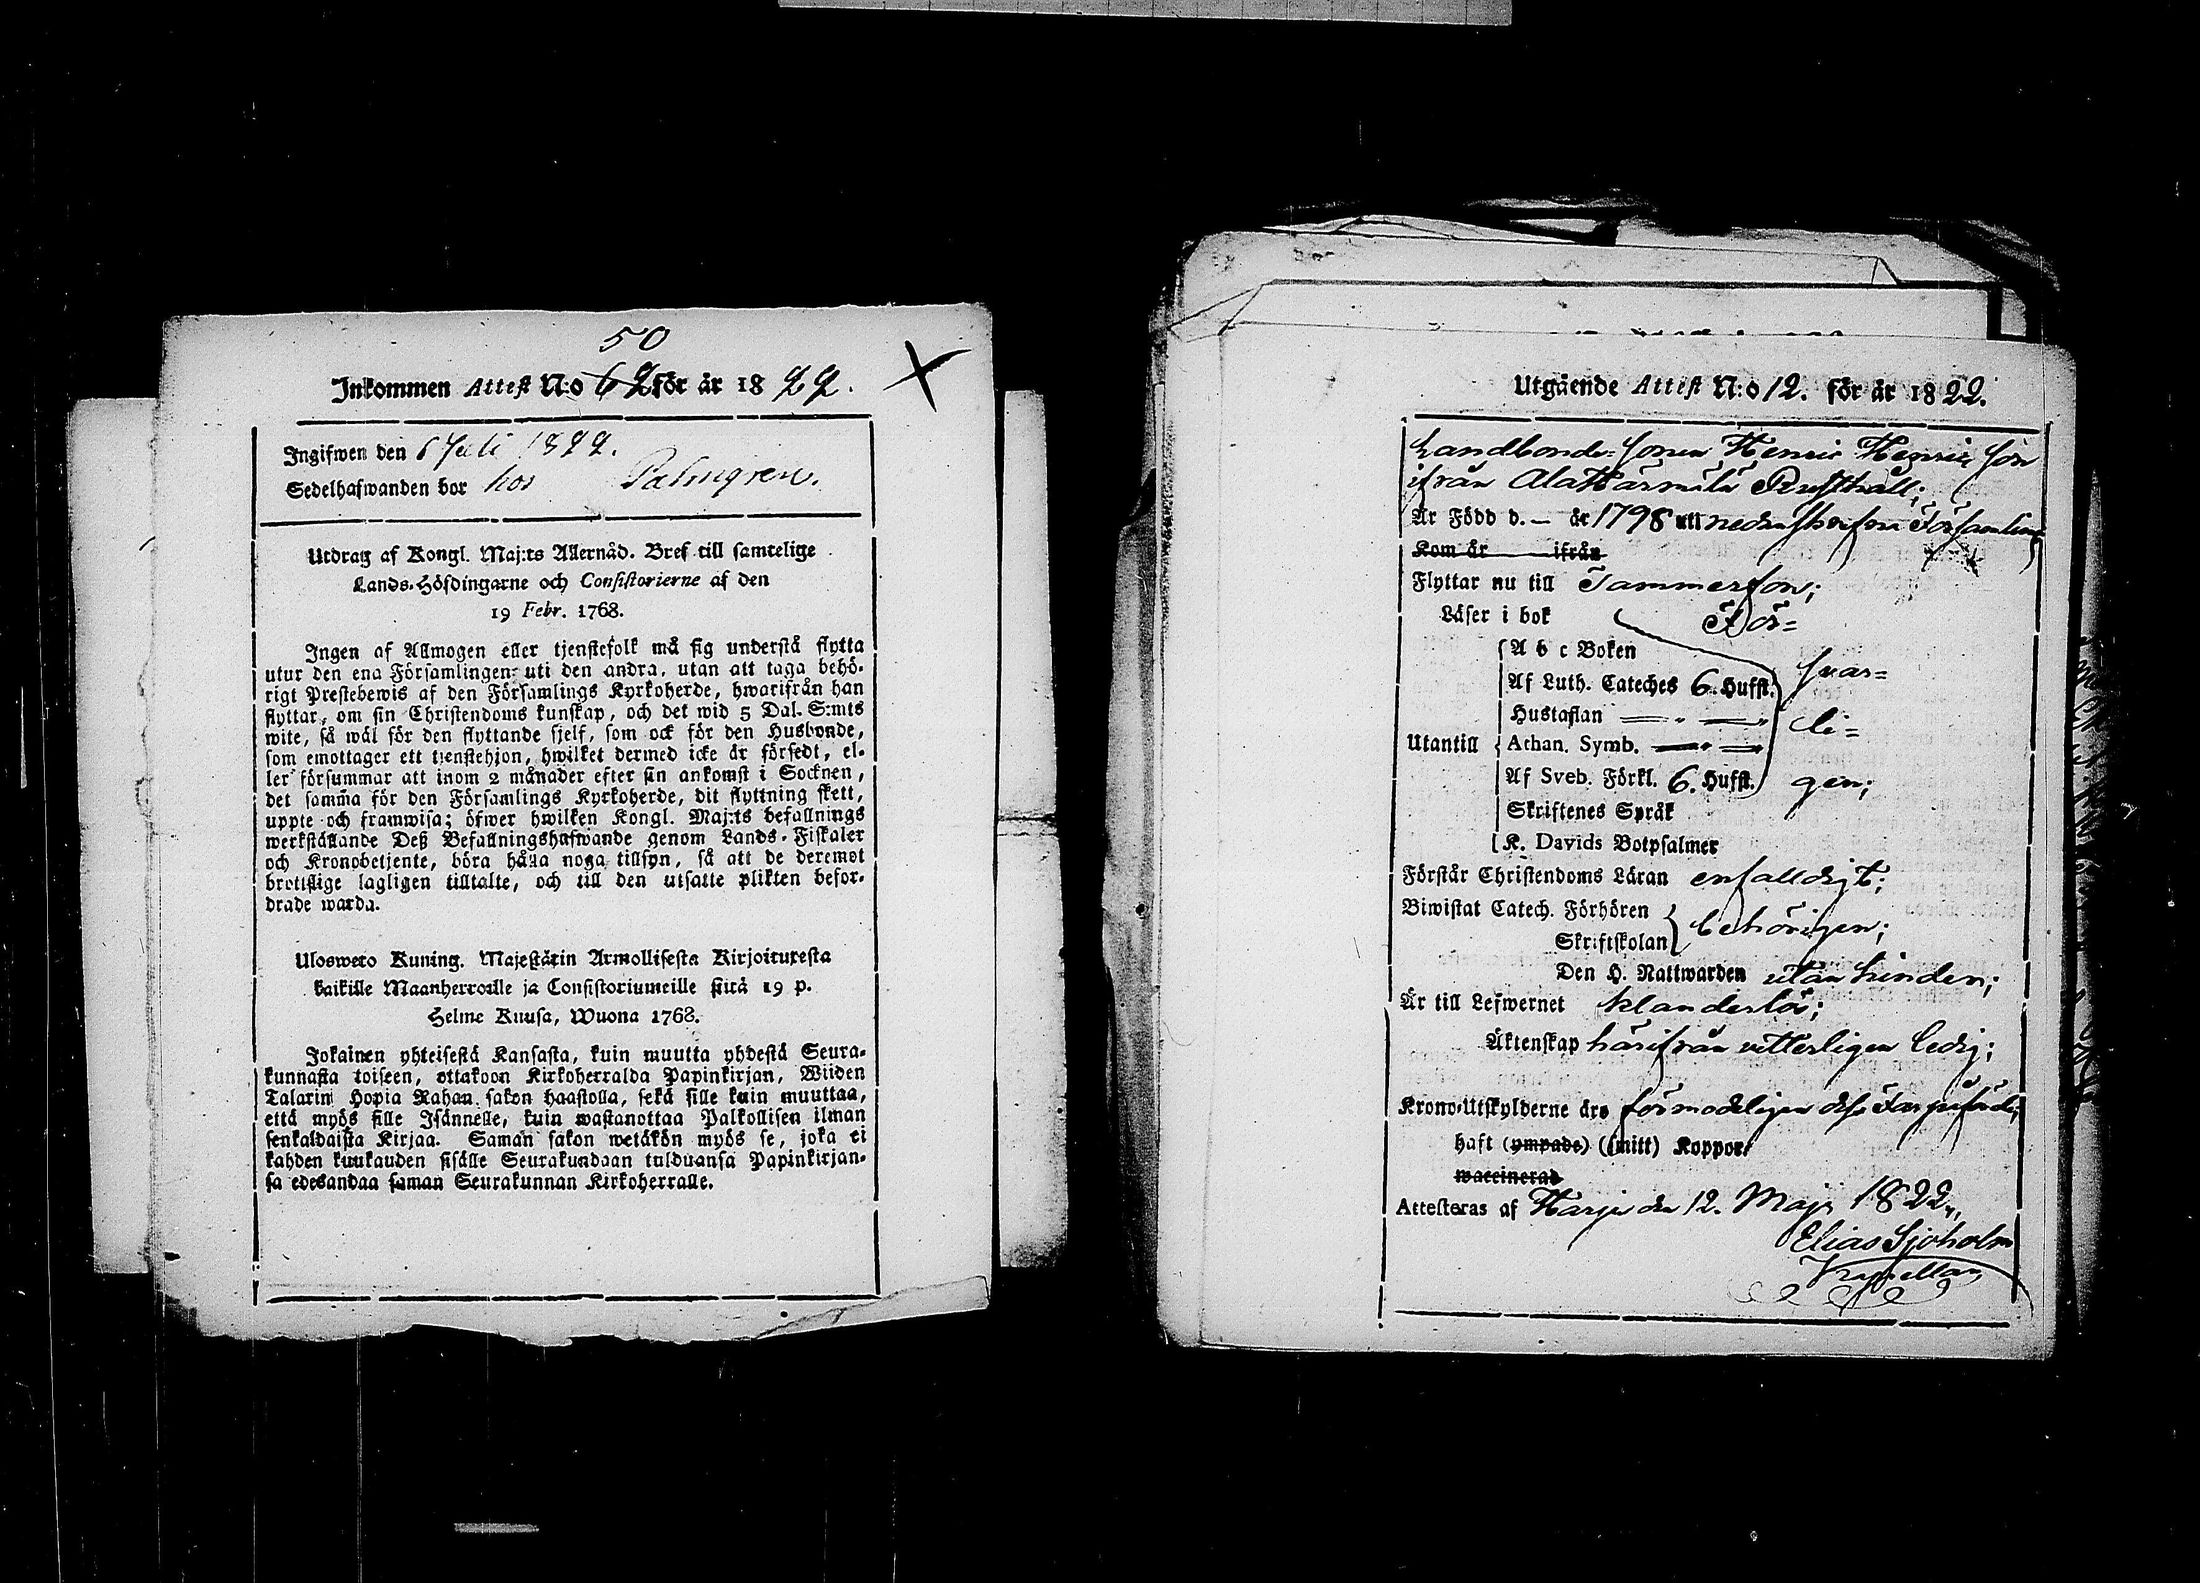 50
Inkommen Attest N:o 62 för år 1822.
Ingifwen den 6 Juli 1822.
Sedelhafwanden bor hos Palmgren.
Utdrag af Kongl. Maj:ts Allernåd. Bref till samtelige
Lands-Höfdingarne och Consistorierne af den
19 Febr. 1768.
Ingen af Allmogen eller tjenstefolk må sig understå flytta
utur den ena Församlingen uti den andra, utan att taga behö-
rigt Prestebewis af den Församlings Kyrkoherde, hwarifrån han
flyttar, om sin Christendoms kunskap, och det wid 5 Dal. S:mts
wite, så wäl för den flyttande sjelf, som ock för den Husbonde,
som emottager ett tjenstehjon, hwilket dermed icke är försedt, el-
ler försummar att inom 2 månader efter sin ankomst i Socknen,
det samma för den Församlings Kyrkoherde, dit flyttning skett,
uppte och framwisa; öfwer hwilken Kongl. Maj:ts befallnings
werkställande Deß Befallningshafwande genom Lands-Fiskaler
och Kronobetjente, böra hålla noga tillsyn, så att de deremot
brottslige lagligen tilltalte, och till den utsatte plikten befor-
drade warda.
Uloswetо Kuning. Majestätin Armollisesta Kirjoituxesta
kaikille Maanherroille ja Consistoriumeille siitä 19 p.
Helme Kuusa, Wuona 1768.
Jokainen yhteisestä Kansasta, kuin muutta yhdestä Seura-
kunnasta toiseen, ottakoon Kirkoherralda Papinkirjan, Wiiden
Talarin Hopia Rahan sakon haastolla, sekä sille kuin muuttaa,
että myös sille Isännelle, kuin wastanottaa Palkollisen ilman
senkaldaista Kirjaa. Saman sakon wetäkön myös se, joka ei
kahden kuukauden sisälle Seurakundaan tulduansa Papinkirjan-
sa edesandaa saman Seurakunnan Kirkoherralle.
Utgående Attest N:o 12. för år 1822.
Landbonde-Sonen Henric Henricsson
ifrån AlaHärmälä Rusthåll;
Är Född d. — år 1798 uti nedanskrefne Församling
Kom år ifrån
Flyttar nu till Tammerfors;
Läser i bok För-
A b c Boken
Af Luth. Cateches 6. Hufst. svar-
Hustaflan li-
Utantill Athan. Symb.
Af Sveb. Förkl. 6. Hufst. gen;
Skriftenes Språk
K. Davids Botpsalmer
Förstår Christendoms Läran enfalldigt;
Biwistat Catech. Förhören
Skriftskolan behörigen;
Den H. Nattwarden utan hinder;
Är till Lefwernet klanderlös;
Äktenskap härifrån vitterligen ledig;
Krono-Utskylderne äro förmodeligen
haft (ympade) (smitt) Koppor
waccinerad
Attesteras af Harju den 12. Maji 1822.
Elias Sjöholm
Kapellan